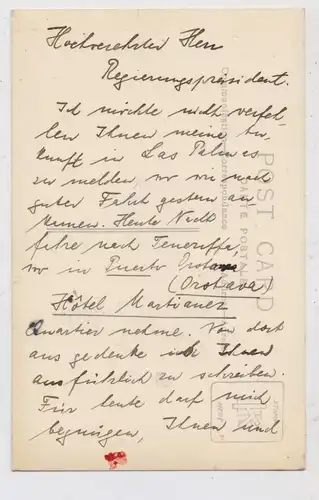 Hochverehrter Herr
Regierungspräsident.
Ich möchte nicht verfeh-
len Ihnen meine An-
kunft in Las Palmas
zu melden, wo wir nach
guter Fahrt gestern an
kamen. Heute Nacht
fahre nach Teneriffa,
wo in Puerto Orotava
(Orotava)
Hôtel Martianez
Quartier nehme. Von dort
aus gedenke ich Ihnen
ausführlich zu schreiben.
Für heute darf mich
begnügen, Ihnen und
POST CARD
CARTE POSTALE
Correspondence